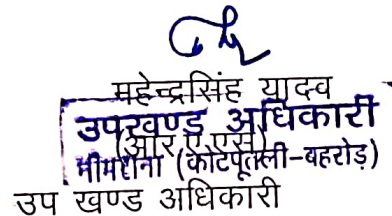 महेन्द्रसिंह यादव
उपखण्ड अधिकारी
(आर.ए.एस)
नीमराना (कोटपूतली-बहरोड़)
उप खण्ड अधिकारी